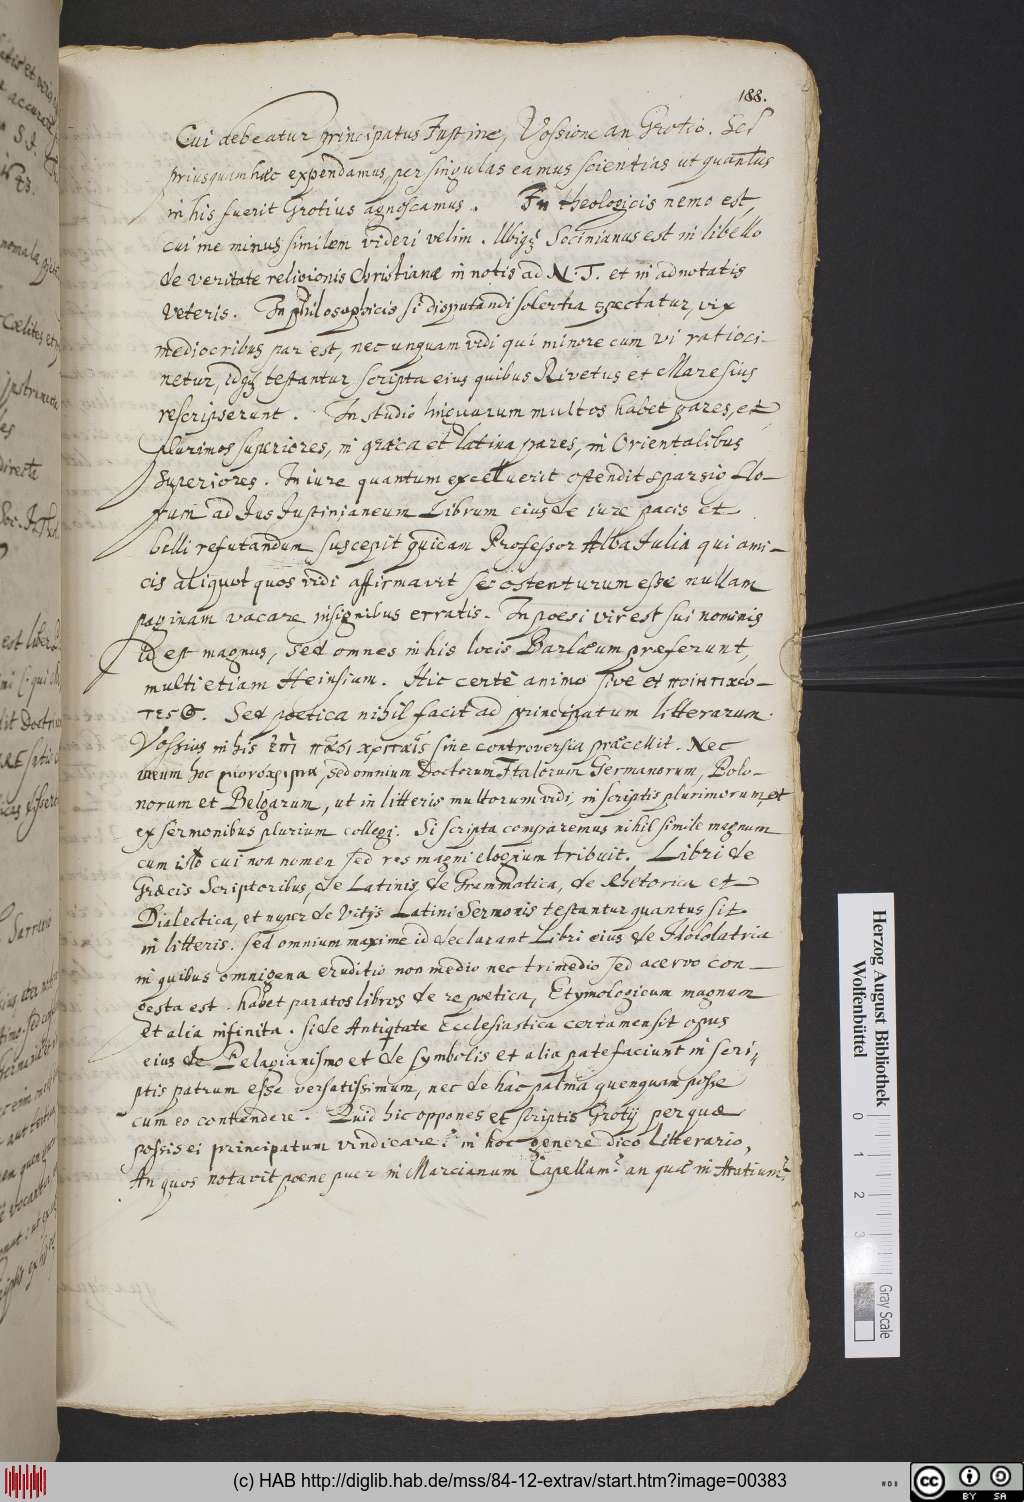 188.
Cui debeatur principatus Justine, Vossione an Grotio. Sed
priusquam hæc expendamus, per singulas eamus scientias ut quantus
in his fuerit Grotius agnoscamus. In theologicis nemo est,
cui me minus similem videri velim. Ubiqꝫ Socinianus est in libello
de veritate religionis Christianæ in notis ad N. T. et in adnotatis
veteris. In philosophicis si disputandi solertia spectatur, vix
mediocribus par est, nec unquam vidi qui minore cum vi ratioci-
netur, idqꝫ testantur scripta eius quibus Rivetus et Maresius
rescripserunt. In studio linguarum multos habet pares, et
plurimos superiores, in græca et latina pares, in Orientalibus
superiores. In iure quantum excelluerit ostendit sparsio flo-
rum ad Jus Justinianeum Librum eius de iure pacis et
belli refutandum suscepit quidam Professor Alba Julia qui ami-
cis aliquot quos vidi affirmavit se ostenturum esse nullam
paginam vacare insignibus erratis. In poesi vir est sui nominis
id est magnus, sed omnes in his locis Barlæum præferunt,
multi etiam Heinsium. Hic certe animo sive et ποιητικώ-
τεϱ. Sed poetica nihil facit ad principatum litterarum.
Vossius in his sine controversia præcellit. Nec
meum hoc, sed omnium Doctorum Italorum Germanorum, Polo-
norum et Belgarum, ut in litteris multorum vidi, in scriptis plurimorum, et
ex sermonibus plurium collegi. Si scripta comparemus nihil simile magnum
cum isto cui non nomen sed res magni elogium tribuit. Libri de
Græcis Scriptoribus, de Latinis, de Grammatica, de Rhetorica et
Dialectica, et nuper de Vitijs Latini Sermonis testantur quantus sit
in litteris. sed omnium maxime id declarant Libri eius de Idololatria
in quibus omnigena eruditio non medio nec trimedio sed acervo con-
gesta est. habet paratos libros de re poetica, Etymologicum magnum
et alia infinita. si de Antiqtate Ecclesiastica certamen sit opus
eius de Pelagianismo et de symbolis et alia patefaciunt in scri-
ptis patrum esse versatissimum, nec de hac palma quenquam posse
cum eo contendere. Quid hic oppones et scriptis Grotij per quæ
possis ei principatum vindicare? in hoc genere dico Litterario,
An quos notavit pæne puer in Marcianum Capellam? an quæ in Aratium?
Herzog August Bibliothek
Wolfenbüttel
0 1 2 3
Gray Scale
(c) HAB http://diglib.hab.de/mss/84-12-extrav/start.htm?image=00383
WDB
cc BY SA